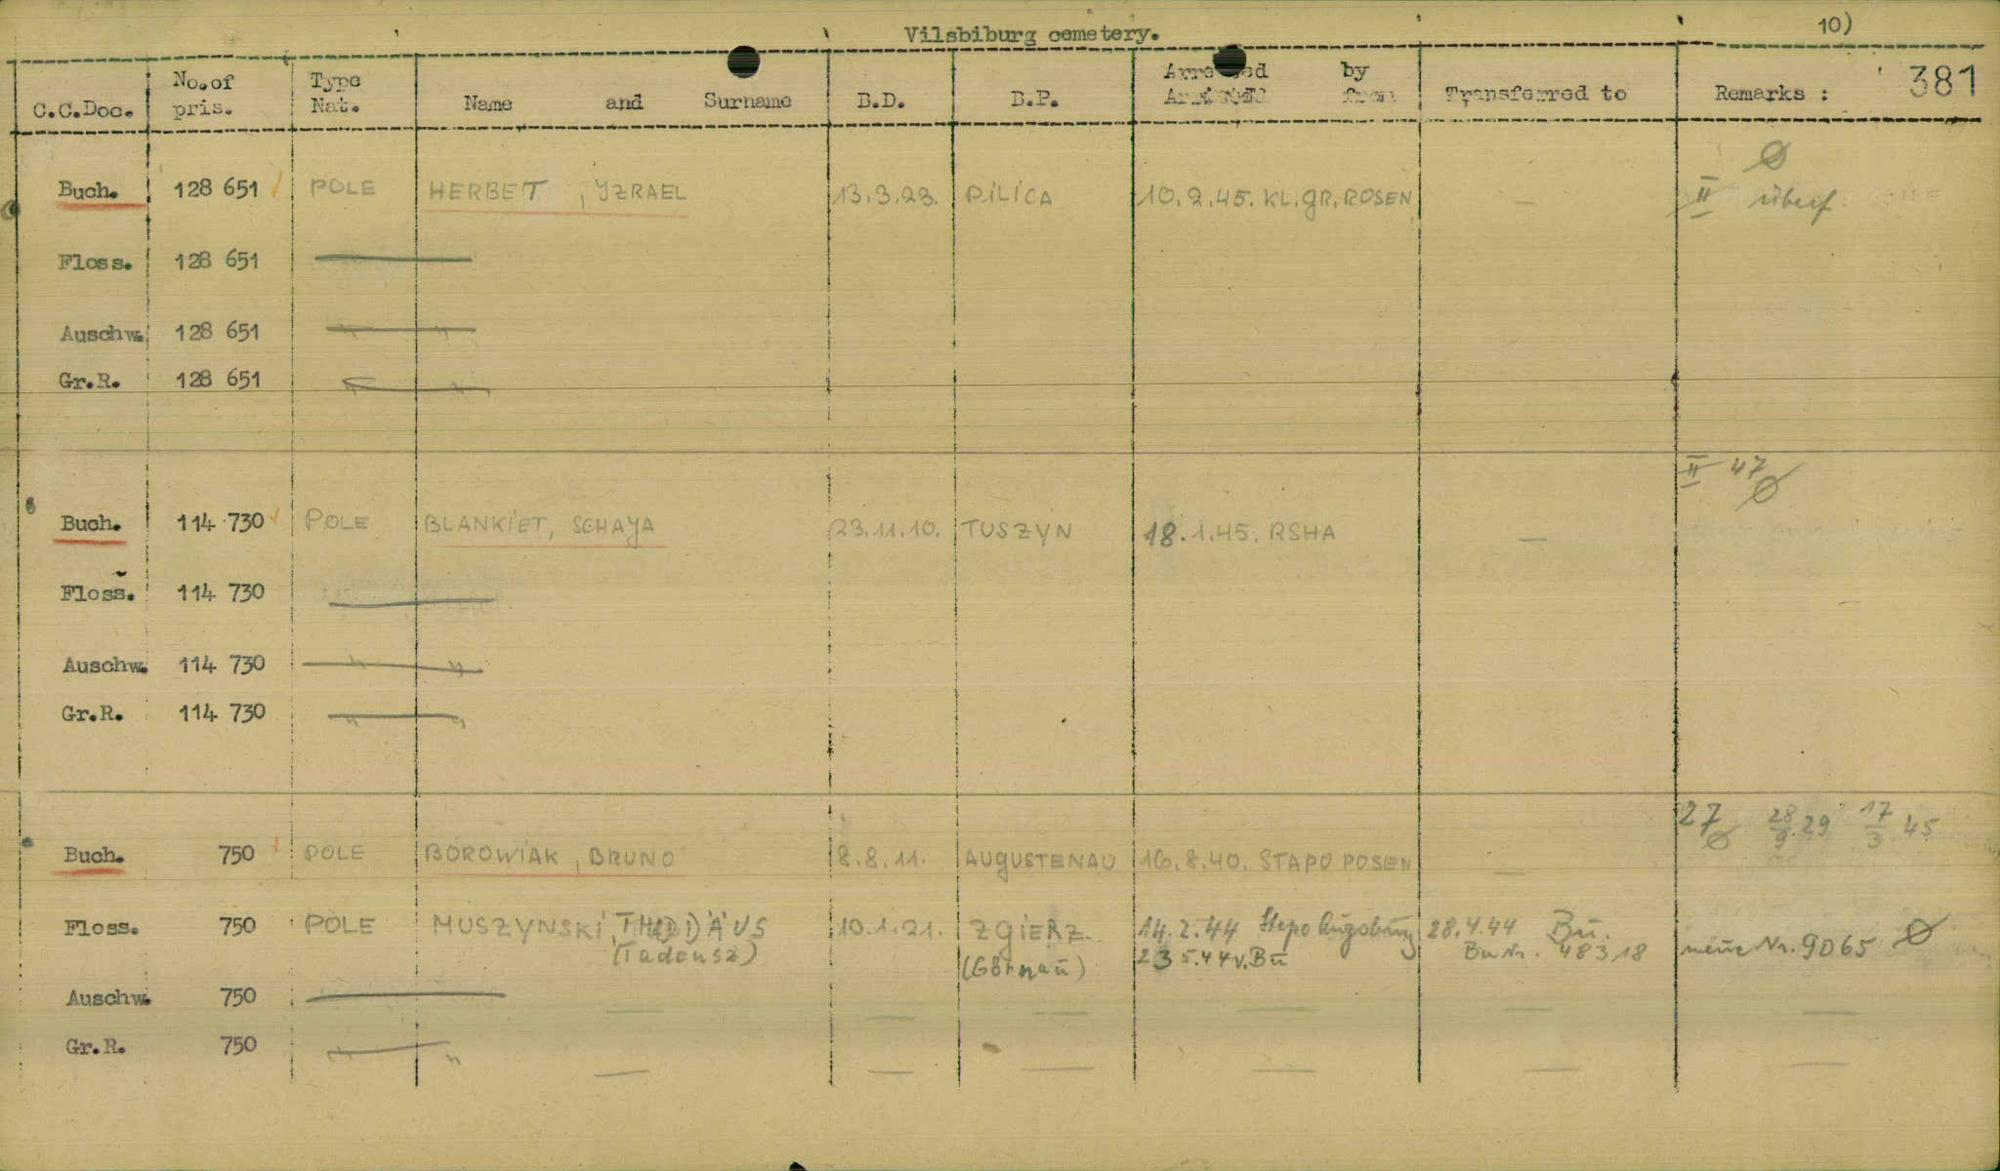 Vilsbiburg cemetery. 10)
381
C.C.Doc. No.of pris. Type Nat. Name and Surname B.D. B.P. Arrested by Arrived from Transferred to Remarks :
Ø
Buch. 128 651 POLE HERBET, YZRAEL 13.3.23. PILICA 10.2.45. KL.GR.ROSEN — II überf.
Floss. 128 651 —
Auschw. 128 651 — " "
Gr.R. 128 651 — " "
II 47 Ø
Buch. 114 730 POLE BLANKIET, SCHAYA 23.11.10. TUSZYN 18.1.45. RSHA —
Floss. 114 730 —
Auschw. 114 730 — " "
Gr.R. 114 730 — " "
27 Ø 28/9.29 17/3 45
Buch. 750 POLE BOROWIAK, BRUNO 8.8.11. AUGUSTENAU 16.8.40. STAPO POSEN —
Floss. 750 POLE MUSZYNSKI, THADDÄUS 10.1.21. ZGIERZ 14.2.44 Stapo Augsburg 28.4.44 Bu.
(Tadeusz) (Görnau) 23 5.44 v. Bu Bu Nr. 48318 neue Nr. 9065 Ø
Auschw. 750 — — — — — — —
Gr.R. 750 — " " — — — — — —